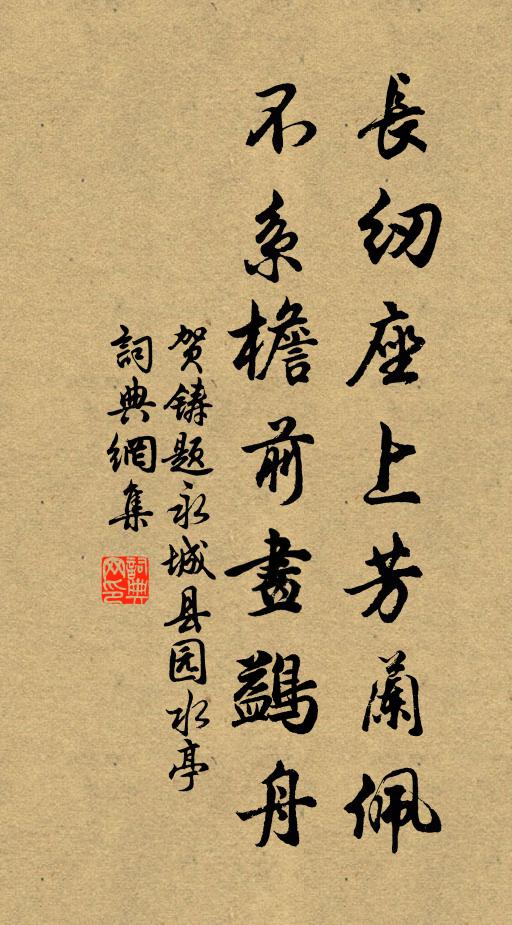 長紉座上芳蘭佩
不系檐前畫鷁舟
贺铸题永城县园水亭
詞典網集
詞典網印